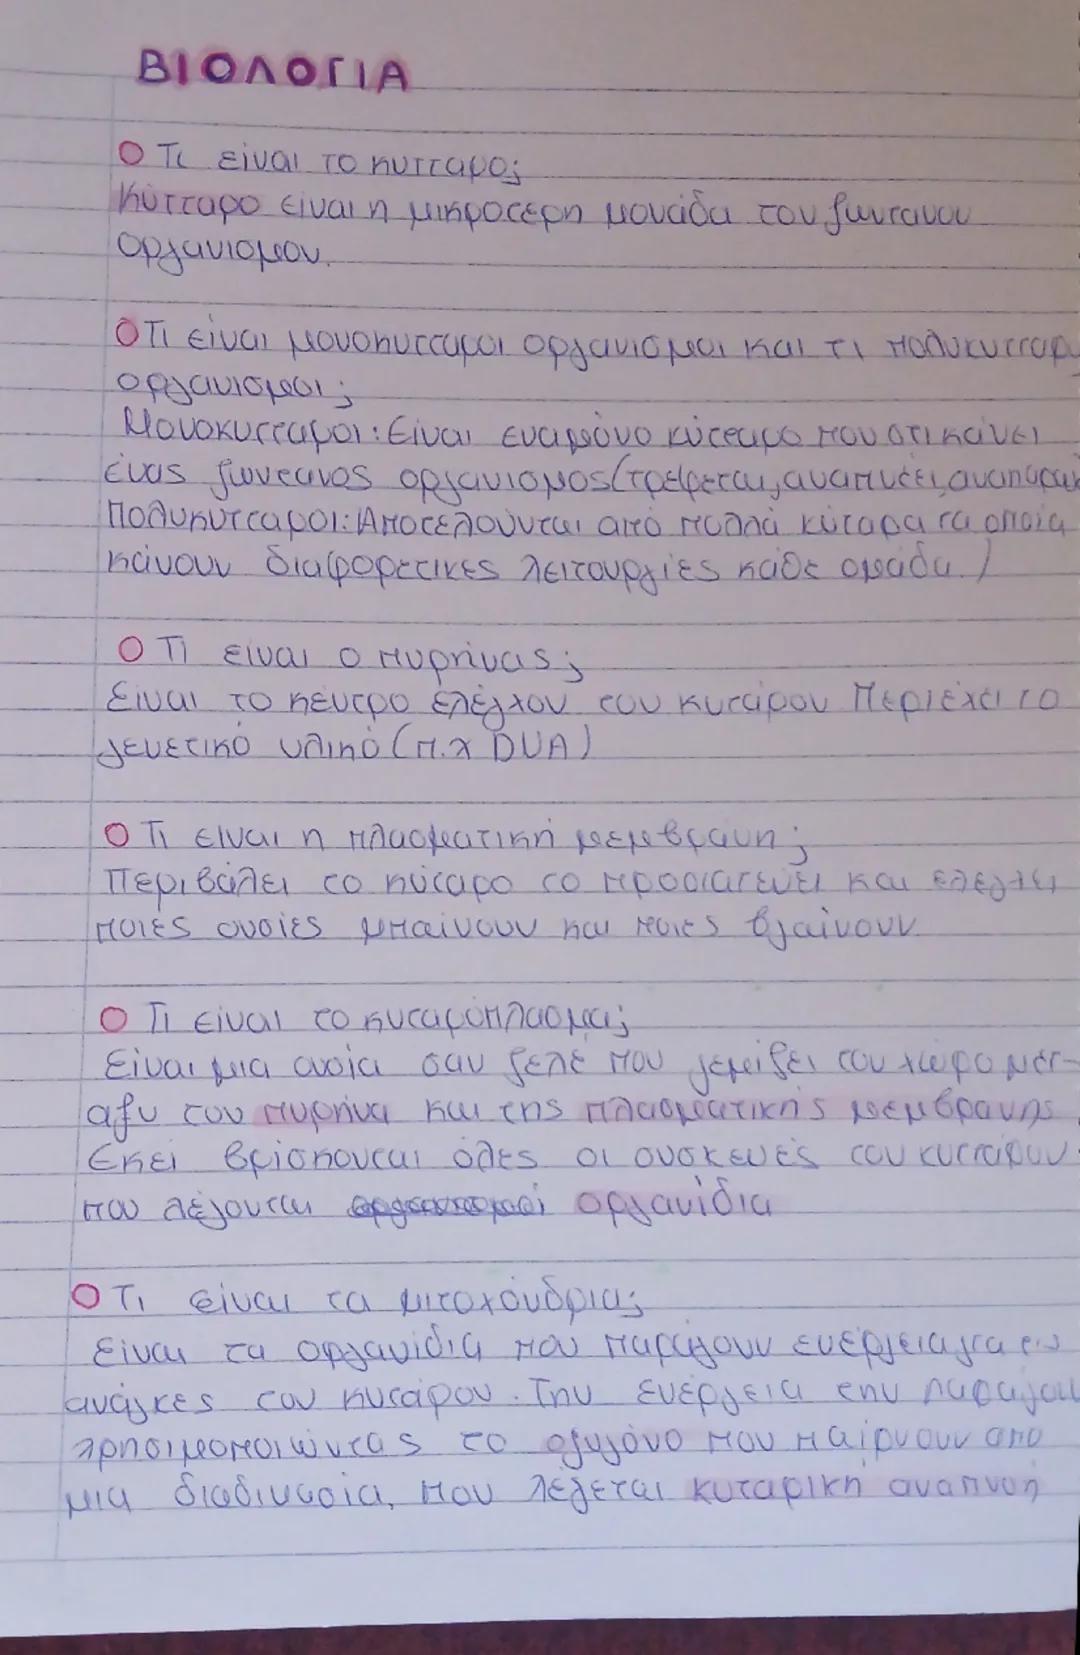 ΒΙΟΛΟΓΙΑ
Τι είναι το κυτταρο;
Κύτταρο είναι η μικροτερη μονάδα του ζωντανου
οργανισμου.
Τι είναι μονοκυτταροι οργανισμοι και τι πολυκυτταρ
οργανισμοι;
Μονοκυτταροι: Είναι ένα μόνο κύτταρο που ότι κάνει
ένας ζωντανος οργανισμος (τρέφεται, αναπνέει, αναπαρα
Πολυκυτταροι: Αποτελούνται από πολλά κύταρα τα οποία
κάνουν διαφορετικες λειτουργίες κάθε ομάδα.)
Τι είναι ο πυρήνας;
Είναι το κέντρο ελέγχου του κυτάρου Περιέχει το
γενετικό υλικό (π.χ DNA)
Τι είναι η πλασματική μεμβρανη;
Περιβάλει το κύταρο το προστατευει και ελεγχει
ποιες ουσίες μπαίνουν και ποιες βγαίνουν
Τι είναι το κυταρόπλασμα;
Είναι μια ουσία σαν ζελέ που γεμίζει τον χώρο μετ-
αξυ του πυρήνα και της πλασματικης μεμβρανης
Εκεί βρίσκονται όλες οι συσκευές του κυττάρου
που λέγονται οργανίδια
Τι είναι τα μιτοχόνδρια;
Είναι τα οργανίδια που παράγουν ενέργεια για τις
ανάγκες του κυτάρου. Την ενέργεια την παραγου
χρησιμοποιώντας το οξυγόνο που παίρνουν απο
μια διαδικασία, που λέγεται κυταρικη αναπνοη